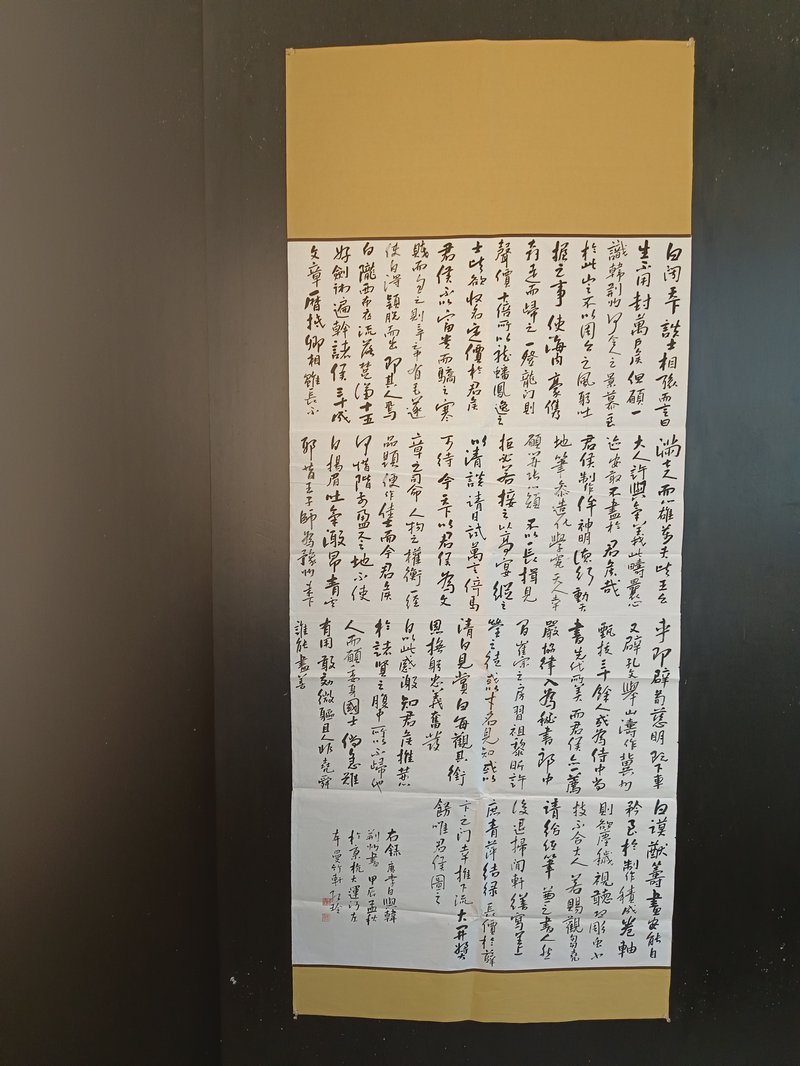 白聞天下談士相聚而言曰
生不用封萬戶侯但願一
識韓荊州何令人之景慕至
於此豈不以周公之風躬吐
握之事使海內豪儁
奔走而歸之一登龍門則
聲價十倍所以龍蟠鳳逸之
士皆欲收名定價於君侯
君侯不以富貴而驕之寒
賤而忽之則三千中有毛遂
使白得穎脫而出即其人焉
白隴西布衣流落楚漢十五
好劍術遍幹諸侯三十成
文章曆抵卿相雖長不
滿七尺而心雄萬夫皆王公
大人許與氣義此疇曩心
跡安敢不盡於君侯哉
君侯制作侔神明德行動天
地筆參造化學究天人幸
願開張心顏不以長揖見
拒必若接之以高宴縱之
以清談請日試萬言倚馬
可待今天下以君侯為文
章之司命人物之權衡一經
品題便作佳士而今君侯
何惜階前盈尺之地不使
白揚眉吐氣激昂青雲
耶昔王子師為豫州未下
車即辟荀慈明既下車
又辟孔文舉山濤作冀州
甄拔三十餘人或為侍中尚
書先代所美而君侯亦一薦
嚴協律入為秘書郎中
間崔宗之房習祖黎昕許
瑩之徒或以才名見知或以
清白見賞白每觀其銜
恩撫躬忠義奮發
白以此感激知君侯推赤心
於諸賢之腹中所以不歸他
人而願委身國士倘急難
有用敢效微軀且人非堯舜
誰能盡善
白謨猷籌畫安能自
矜至於制作積成卷軸
則欲塵穢視聽恐彫蟲小
技不合大人若賜觀芻蕘
請給紙筆兼之書人然
後退掃閒軒繕寫呈上
庶青萍結綠長價於薛
卞之門幸推下流大開獎
飾唯君侯圖之
右錄唐李白與韓
荊州書甲辰孟秋
於京杭大運河左
岸曼竹軒